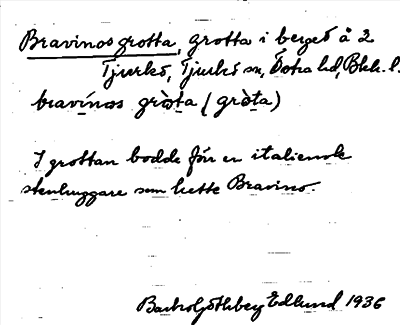 Bravinos grotta, grotta i berget å 2
Tjurkö, Tjurkö sn, Östra hd, Blek. l.
bravínɑs grò̀ta (grò̀ta)
I grottan bodde förr en italiensk
stenhuggare som hette Bravino.
Göthberg Edlund 1936